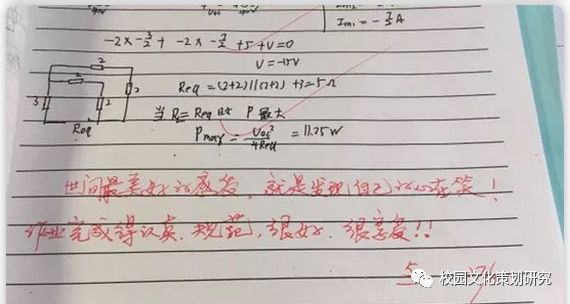 Im1 = -7/2 A
-2×-3/2 + -2×-7/2 +5+V=0
V=-15V
2
2
3
2
2
Req
Req = (2+2)||(2+2) +3=5Ω
当 RL = Req 时 P 最大
Pmax = Uoc²/4Req = 11.25W
世间最美好的感受，就是发现自己的心在笑！
作业完成得认真、规范，很好，很享受!!
校园文化策划研究